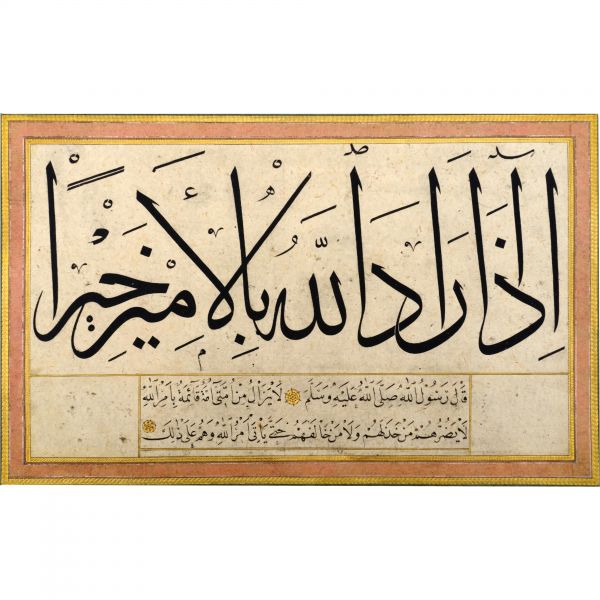 إِذَا أَرَادَ اللَّهُ بِالْأَمِيرِ خَيْرًا
قَالَ رَسُولُ اللَّهِ صَلَّى اللَّهُ عَلَيْهِ وَسَلَّمَ لَا يَزَالُ مِنْ أُمَّتِي أُمَّةٌ قَائِمَةٌ بِأَمْرِ اللَّهِ
لَا يَضُرُّهُمْ مَنْ خَذَلَهُمْ وَلَا مَنْ خَالَفَهُمْ حَتَّى يَأْتِيَ أَمْرُ اللَّهِ وَهُمْ عَلَى ذَلِكَ